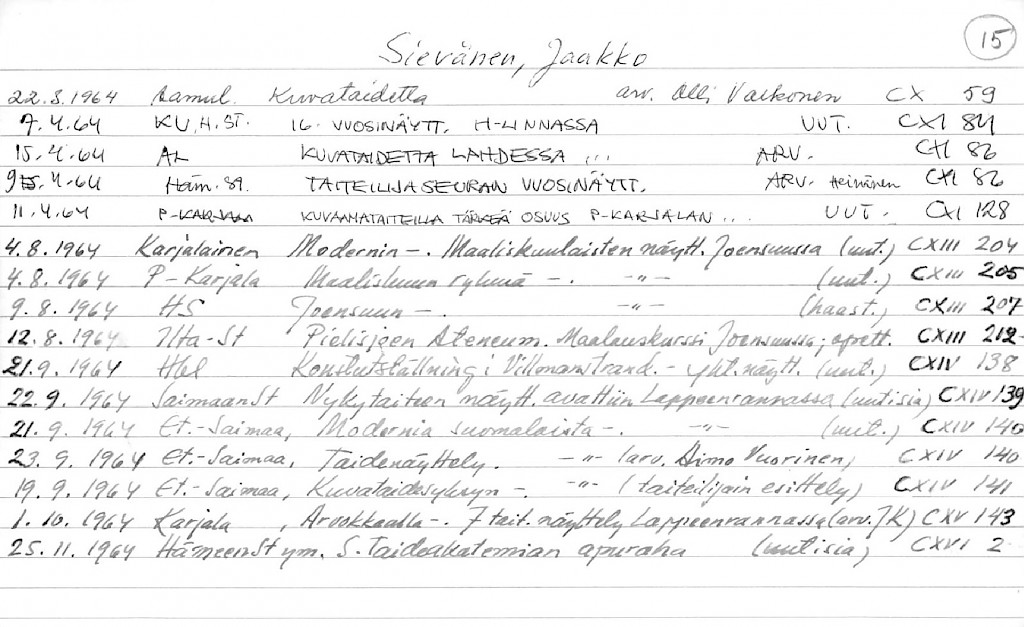 15
Sievänen, Jaakko
22.3.1964 Aamul. Kuvataidetta arv. Olli Valkonen CX 59
7.4.64 KU, H.ST. 16. VUOSINÄYTT. H-LINNASSA UUT. CXI 84
15.4.64 AL KUVATAIDETTA LAHDESSA ... ARV. CXI 86
9.4.64 Häm.s. TAITEILIJASEURAN VUOSINÄYTT. ARV. Heininen CXI 86
11.4.64 P-KARJALA KUVAAMATAITEILLA TÄRKEÄ OSUUS P-KARJALAN ... UUT. CXI 128
4.8.1964 Karjalainen Modernin -. Maaliskuulaisten näytt. Joensuussa (uut.) CXIII 204
4.8.1964 P-Karjala Maaliskuun ryhmä -. -"- (uut.) CXIII 205
9.8.1964 HS Joensuun -. -"- (haast.) CXIII 207
12.8.1964 Ilta-St Pielisjoen Ateneum. Maalauskurssi Joensuussa; opett. CXIII 212
21.9.1964 Hbl Konstutställning i Villmanstrand. - yht.näytt. (uut.) CXIV 138
22.9.1964 SaimaanSt Nykytaiteen näytt. avattiin Lappeenrannassa (uutisia) CXIV 139
21.9.1964 Et.-Saimaa, Modernia suomalaista -. -"- (uut.) CXIV 140
23.9.1964 Et.-Saimaa, Taidenäyttely. -"- (arv. Aimo Vuorinen) CXIV 140
19.9.1964 Et.-Saimaa, Kuvataidesyksyn -. -"- (taiteilijain esittely) CXIV 141
1.10.1964 Karjala, Arvokkaalla -. 7 tait. näyttely Lappeenrannassa (arv. JK) CXV 143
25.11.1964 HämeenSt ym. S.Taideakatemian apuraha (uutisia) CXVI 2